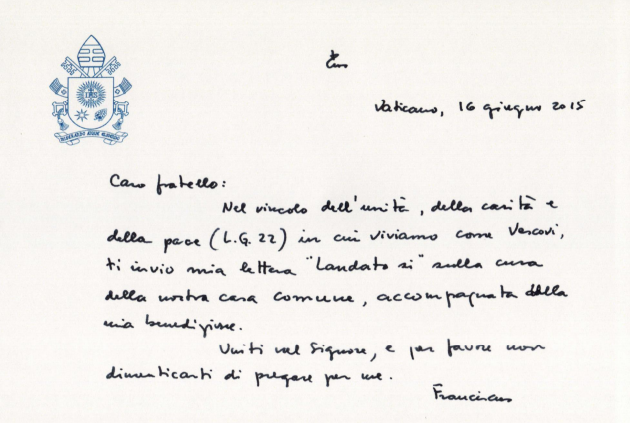 Vaticano, 16 giugno 2015
Caro fratello:
Nel vincolo dell'unità, della carità e
della pace (L.G. 22) in cui viviamo come Vescovi,
ti invio mia lettera "Laudato si" sulla cura
della nostra casa comune, accompagnata dalla
mia benedizione.
Uniti nel Signore, e per favore non
dimenticarti di pregare per me.
Franciscus